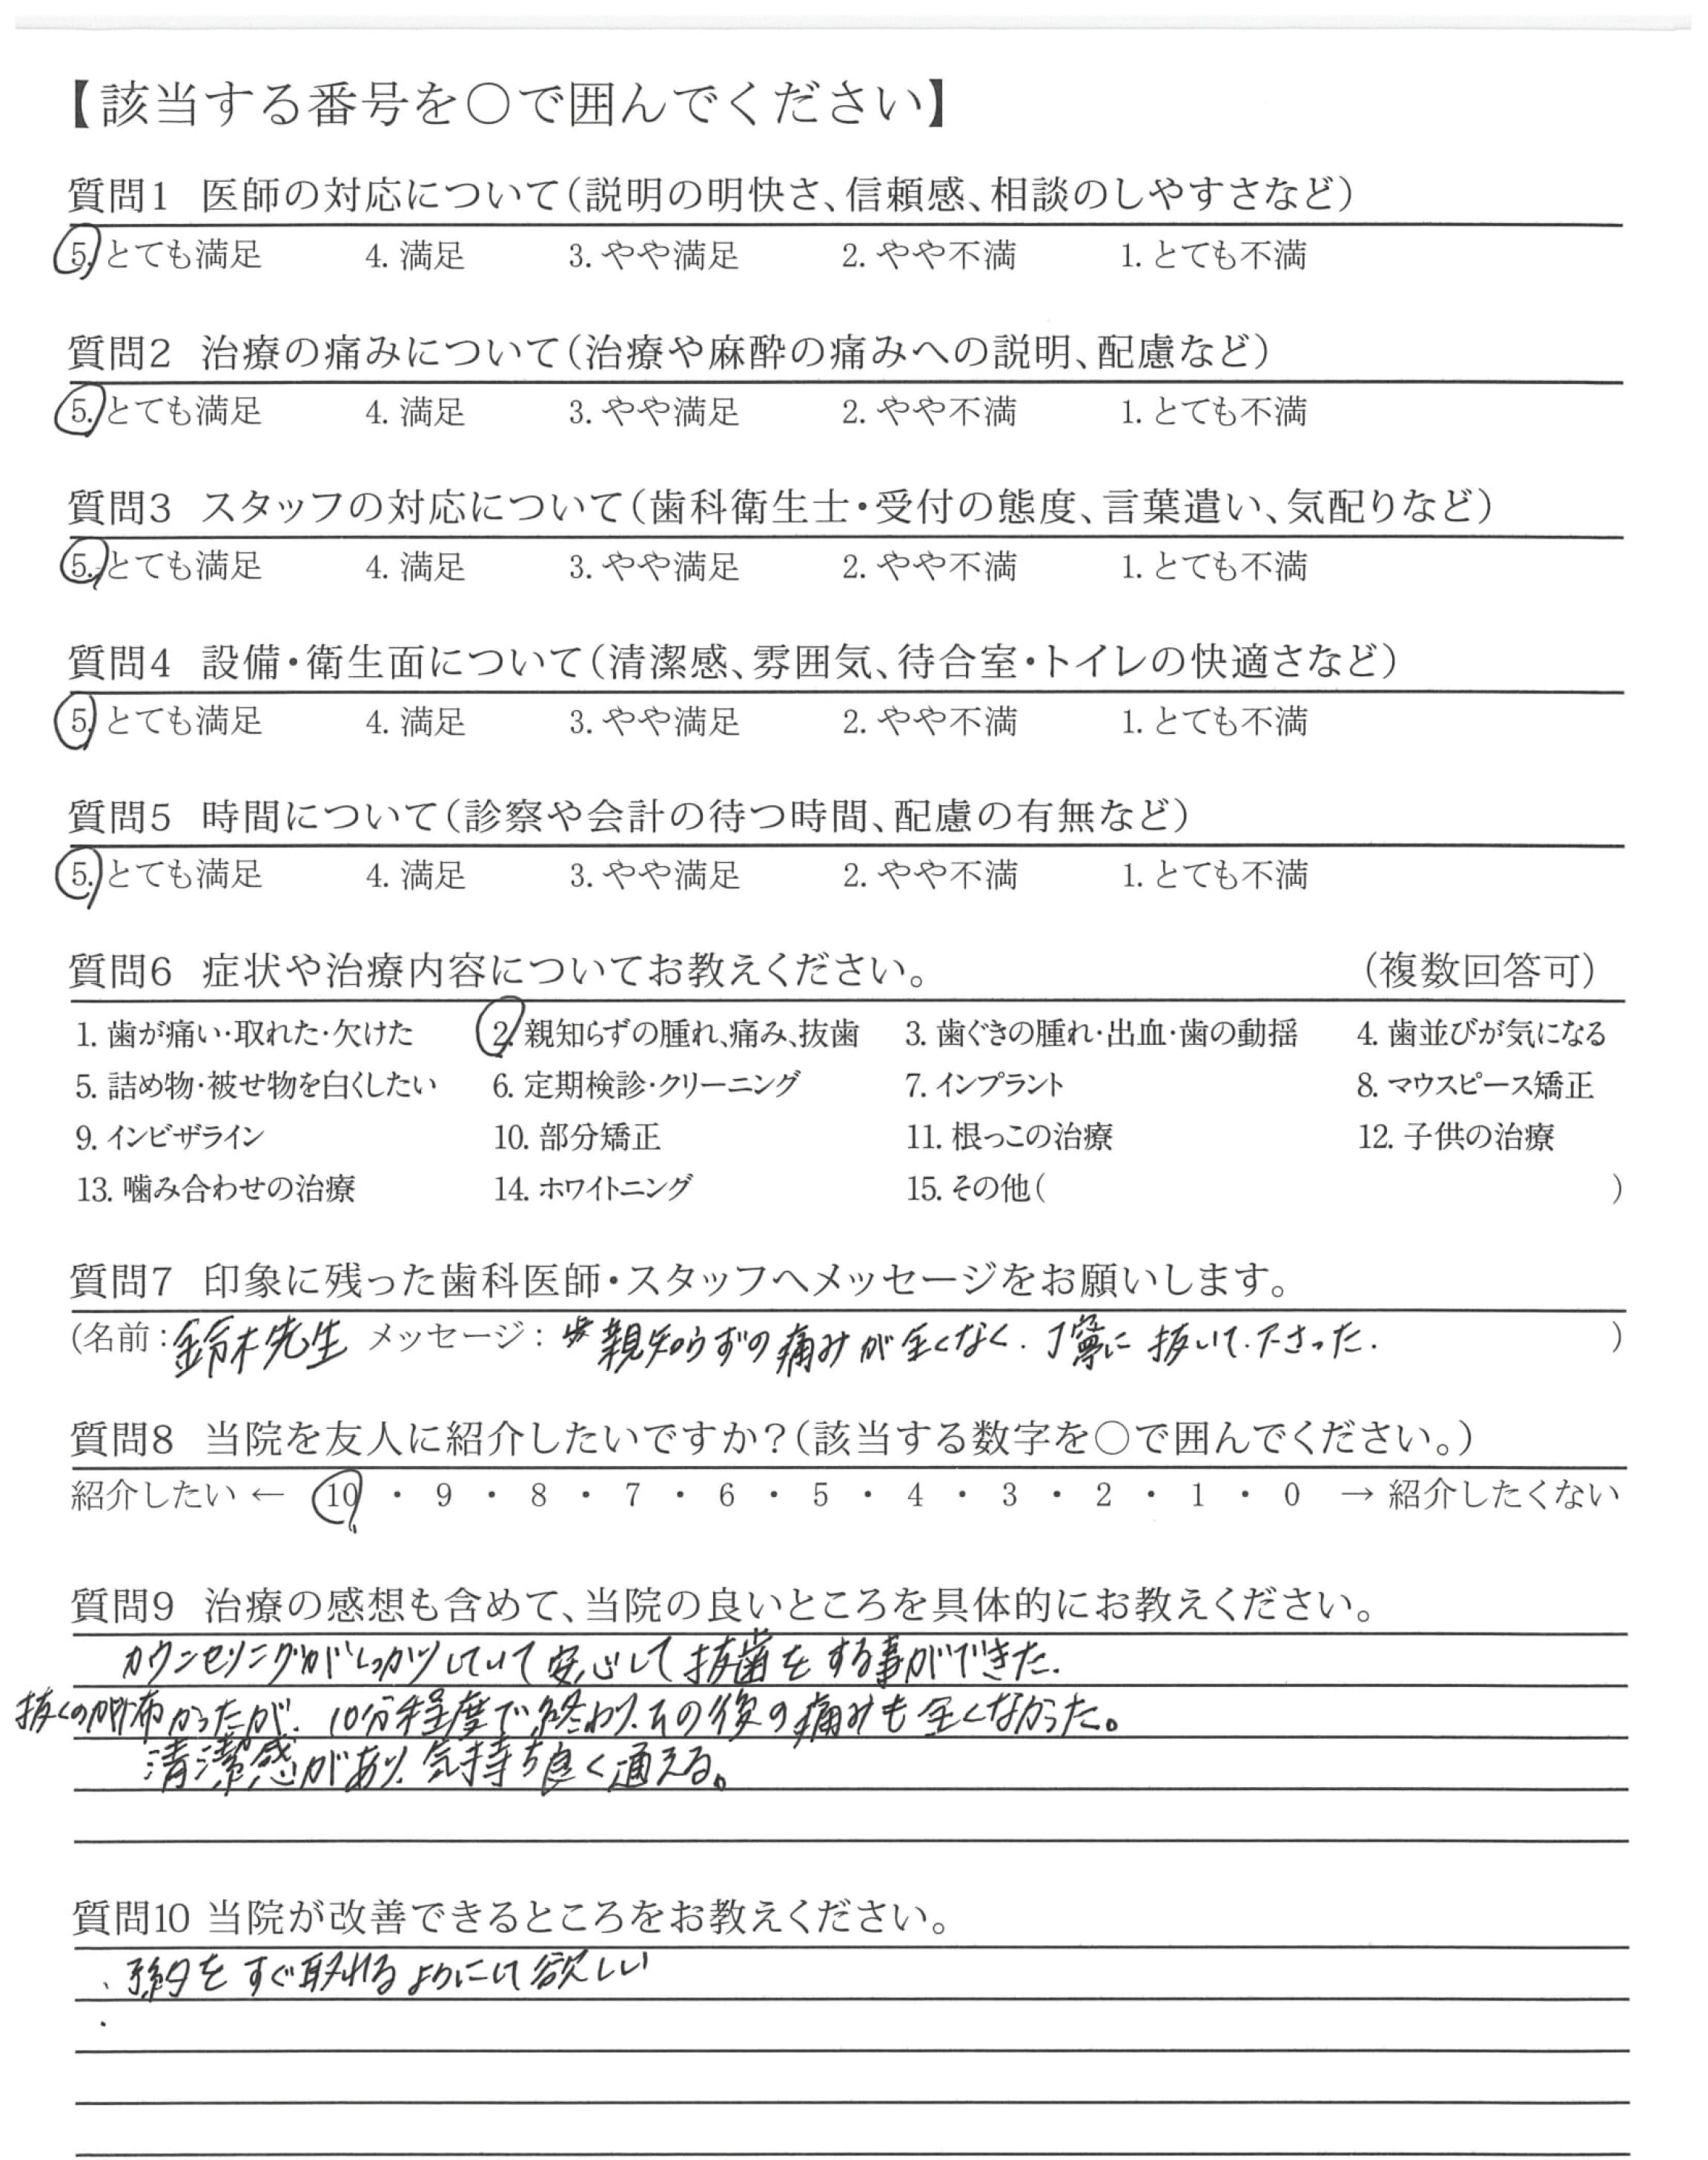 【該当する番号を○で囲んでください】
質問1 医師の対応について(説明の明快さ、信頼感、相談のしやすさなど)
5. とても満足 4. 満足 3. やや満足 2. やや不満 1. とても不満
質問2 治療の痛みについて(治療や麻酔の痛みへの説明、配慮など)
5. とても満足 4. 満足 3. やや満足 2. やや不満 1. とても不満
質問3 スタッフの対応について(歯科衛生士・受付の態度、言葉遣い、気配りなど)
5. とても満足 4. 満足 3. やや満足 2. やや不満 1. とても不満
質問4 設備・衛生面について(清潔感、雰囲気、待合室・トイレの快適さなど)
5. とても満足 4. 満足 3. やや満足 2. やや不満 1. とても不満
質問5 時間について(診察や会計の待つ時間、配慮の有無など)
5. とても満足 4. 満足 3. やや満足 2. やや不満 1. とても不満
質問6 症状や治療内容についてお教えください。 (複数回答可)
1. 歯が痛い・取れた・欠けた 2. 親知らずの腫れ、痛み、抜歯 3. 歯ぐきの腫れ・出血・歯の動揺 4. 歯並びが気になる
5. 詰め物・被せ物を白くしたい 6. 定期検診・クリーニング 7. インプラント 8. マウスピース矯正
9. インビザライン 10. 部分矯正 11. 根っこの治療 12. 子供の治療
13. 噛み合わせの治療 14. ホワイトニング 15. その他( )
質問7 印象に残った歯科医師・スタッフへメッセージをお願いします。
(名前:鈴木先生 メッセージ: 親知らずの痛みが全くなく、丁寧に抜いて下さった. )
質問8 当院を友人に紹介したいですか?(該当する数字を○で囲んでください。)
紹介したい ← 10 ・ 9 ・ 8 ・ 7 ・ 6 ・ 5 ・ 4 ・ 3 ・ 2 ・ 1 ・ 0 → 紹介したくない
質問9 治療の感想も含めて、当院の良いところを具体的にお教えください。
カウンセリングがしっかりしていて安心して抜歯をする事ができた.
抜くのが怖かったが、10分程度で終わり、その後の痛みも全くなかった。
清潔感があり、気持ち良く通える。
質問10 当院が改善できるところをお教えください。
、予約をすぐ取れるようにして欲しい